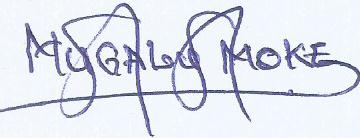 MUGALU MOKE